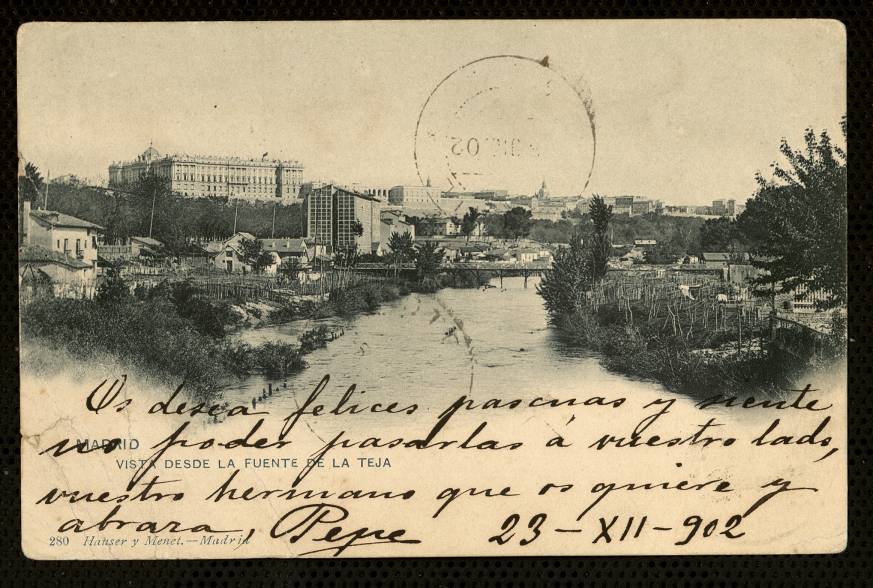 02
Os desea felices pascuas y siente
no poder pasarlas á vuestro lado,
MADRID
VISTA DESDE LA FUENTE DE LA TEJA
vuestro hermano que os quiere y
abraza, Pepe 23-XII-902
280 Hauser y Menet.—Madrid